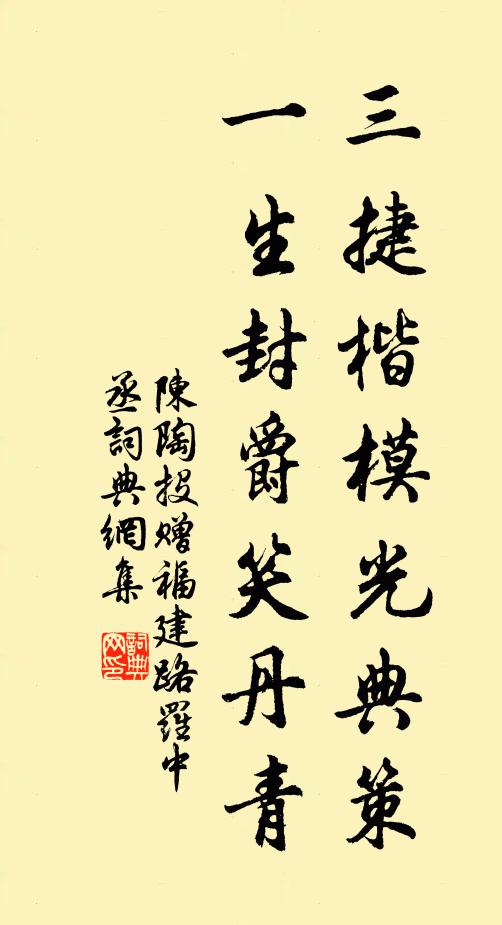 三捷楷模光典策
一生封爵笑丹青
陳陶投贈福建路羅中
丞詞典網集
詞典網印